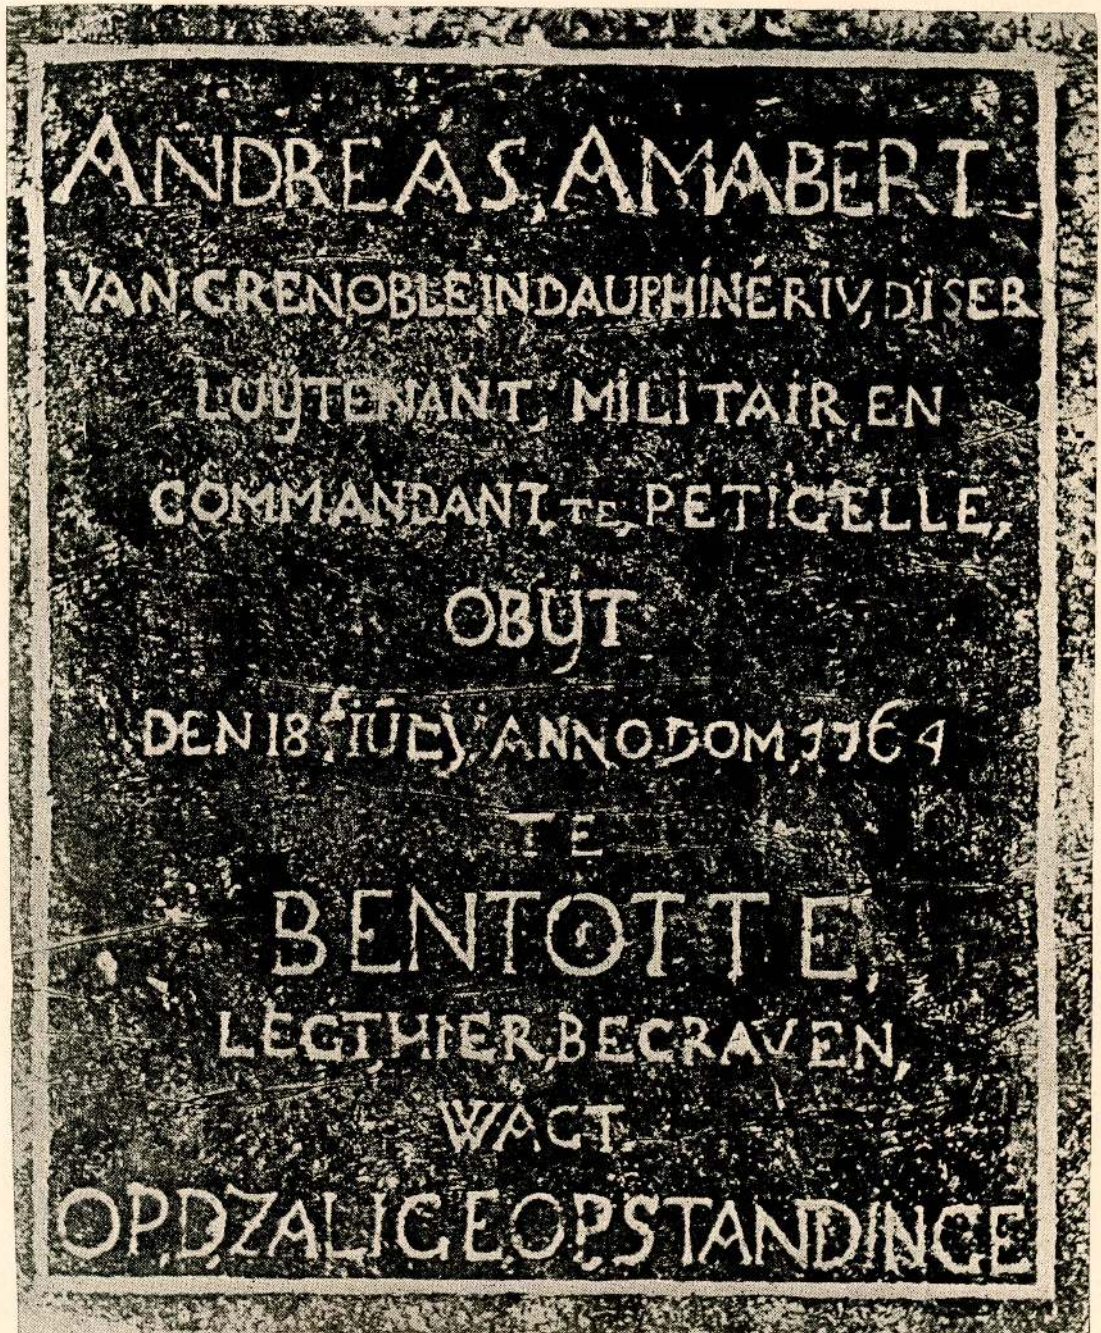 ANDREAS, AMABERT
VAN, GRENOBLE IN DAUPHINÉ RIV, DISER
LUŸTENANT, MILITAIR, EN
COMMANDANT, TE, PETIGELLE,
OBŸT
DEN 18 IULŸ, ANNO DOM, 1764
TE
BENTOTTE,
LEGT, HIER, BEGRAVEN,
WACT
OP, D, ZALIGE OPSTANDINGE